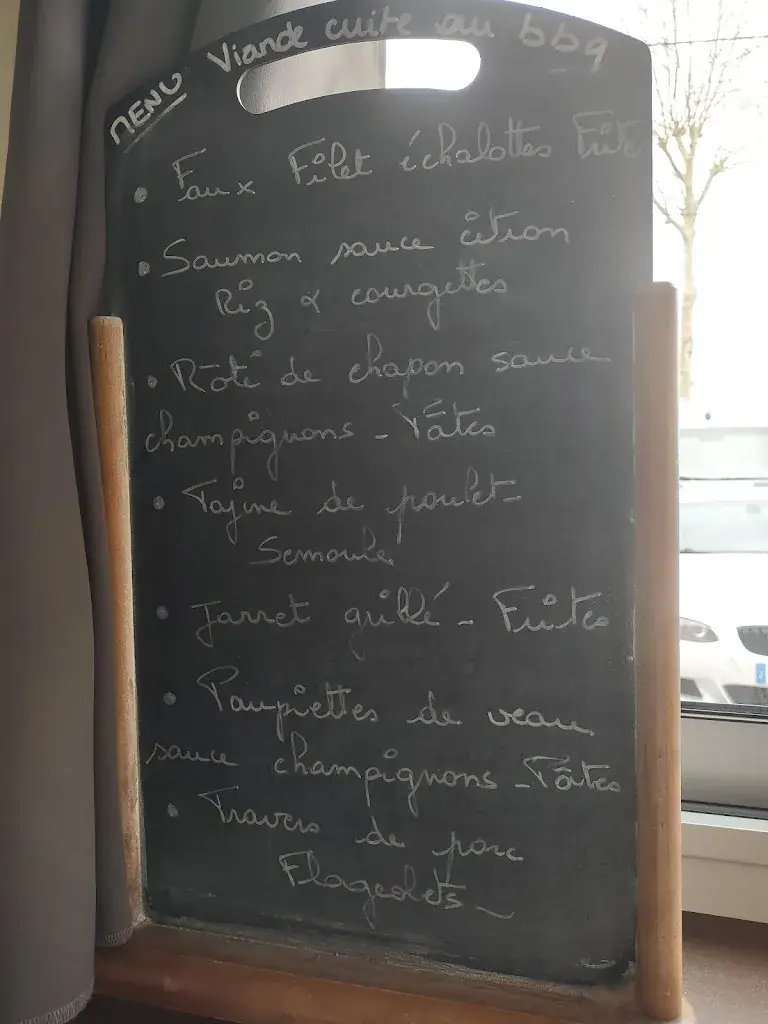 MENU Viande cuite au bbq
• Faux Filet échalottes Frites
• Saumon sauce citron
Riz & courgettes
• Rôti de chapon sauce
champignons - Pâtes
• Tajine de poulet -
Semoule
• Jarret grillé - Frites
• Paupiettes de veau
sauce champignons - Pâtes
• Travers de porc
Flageolets